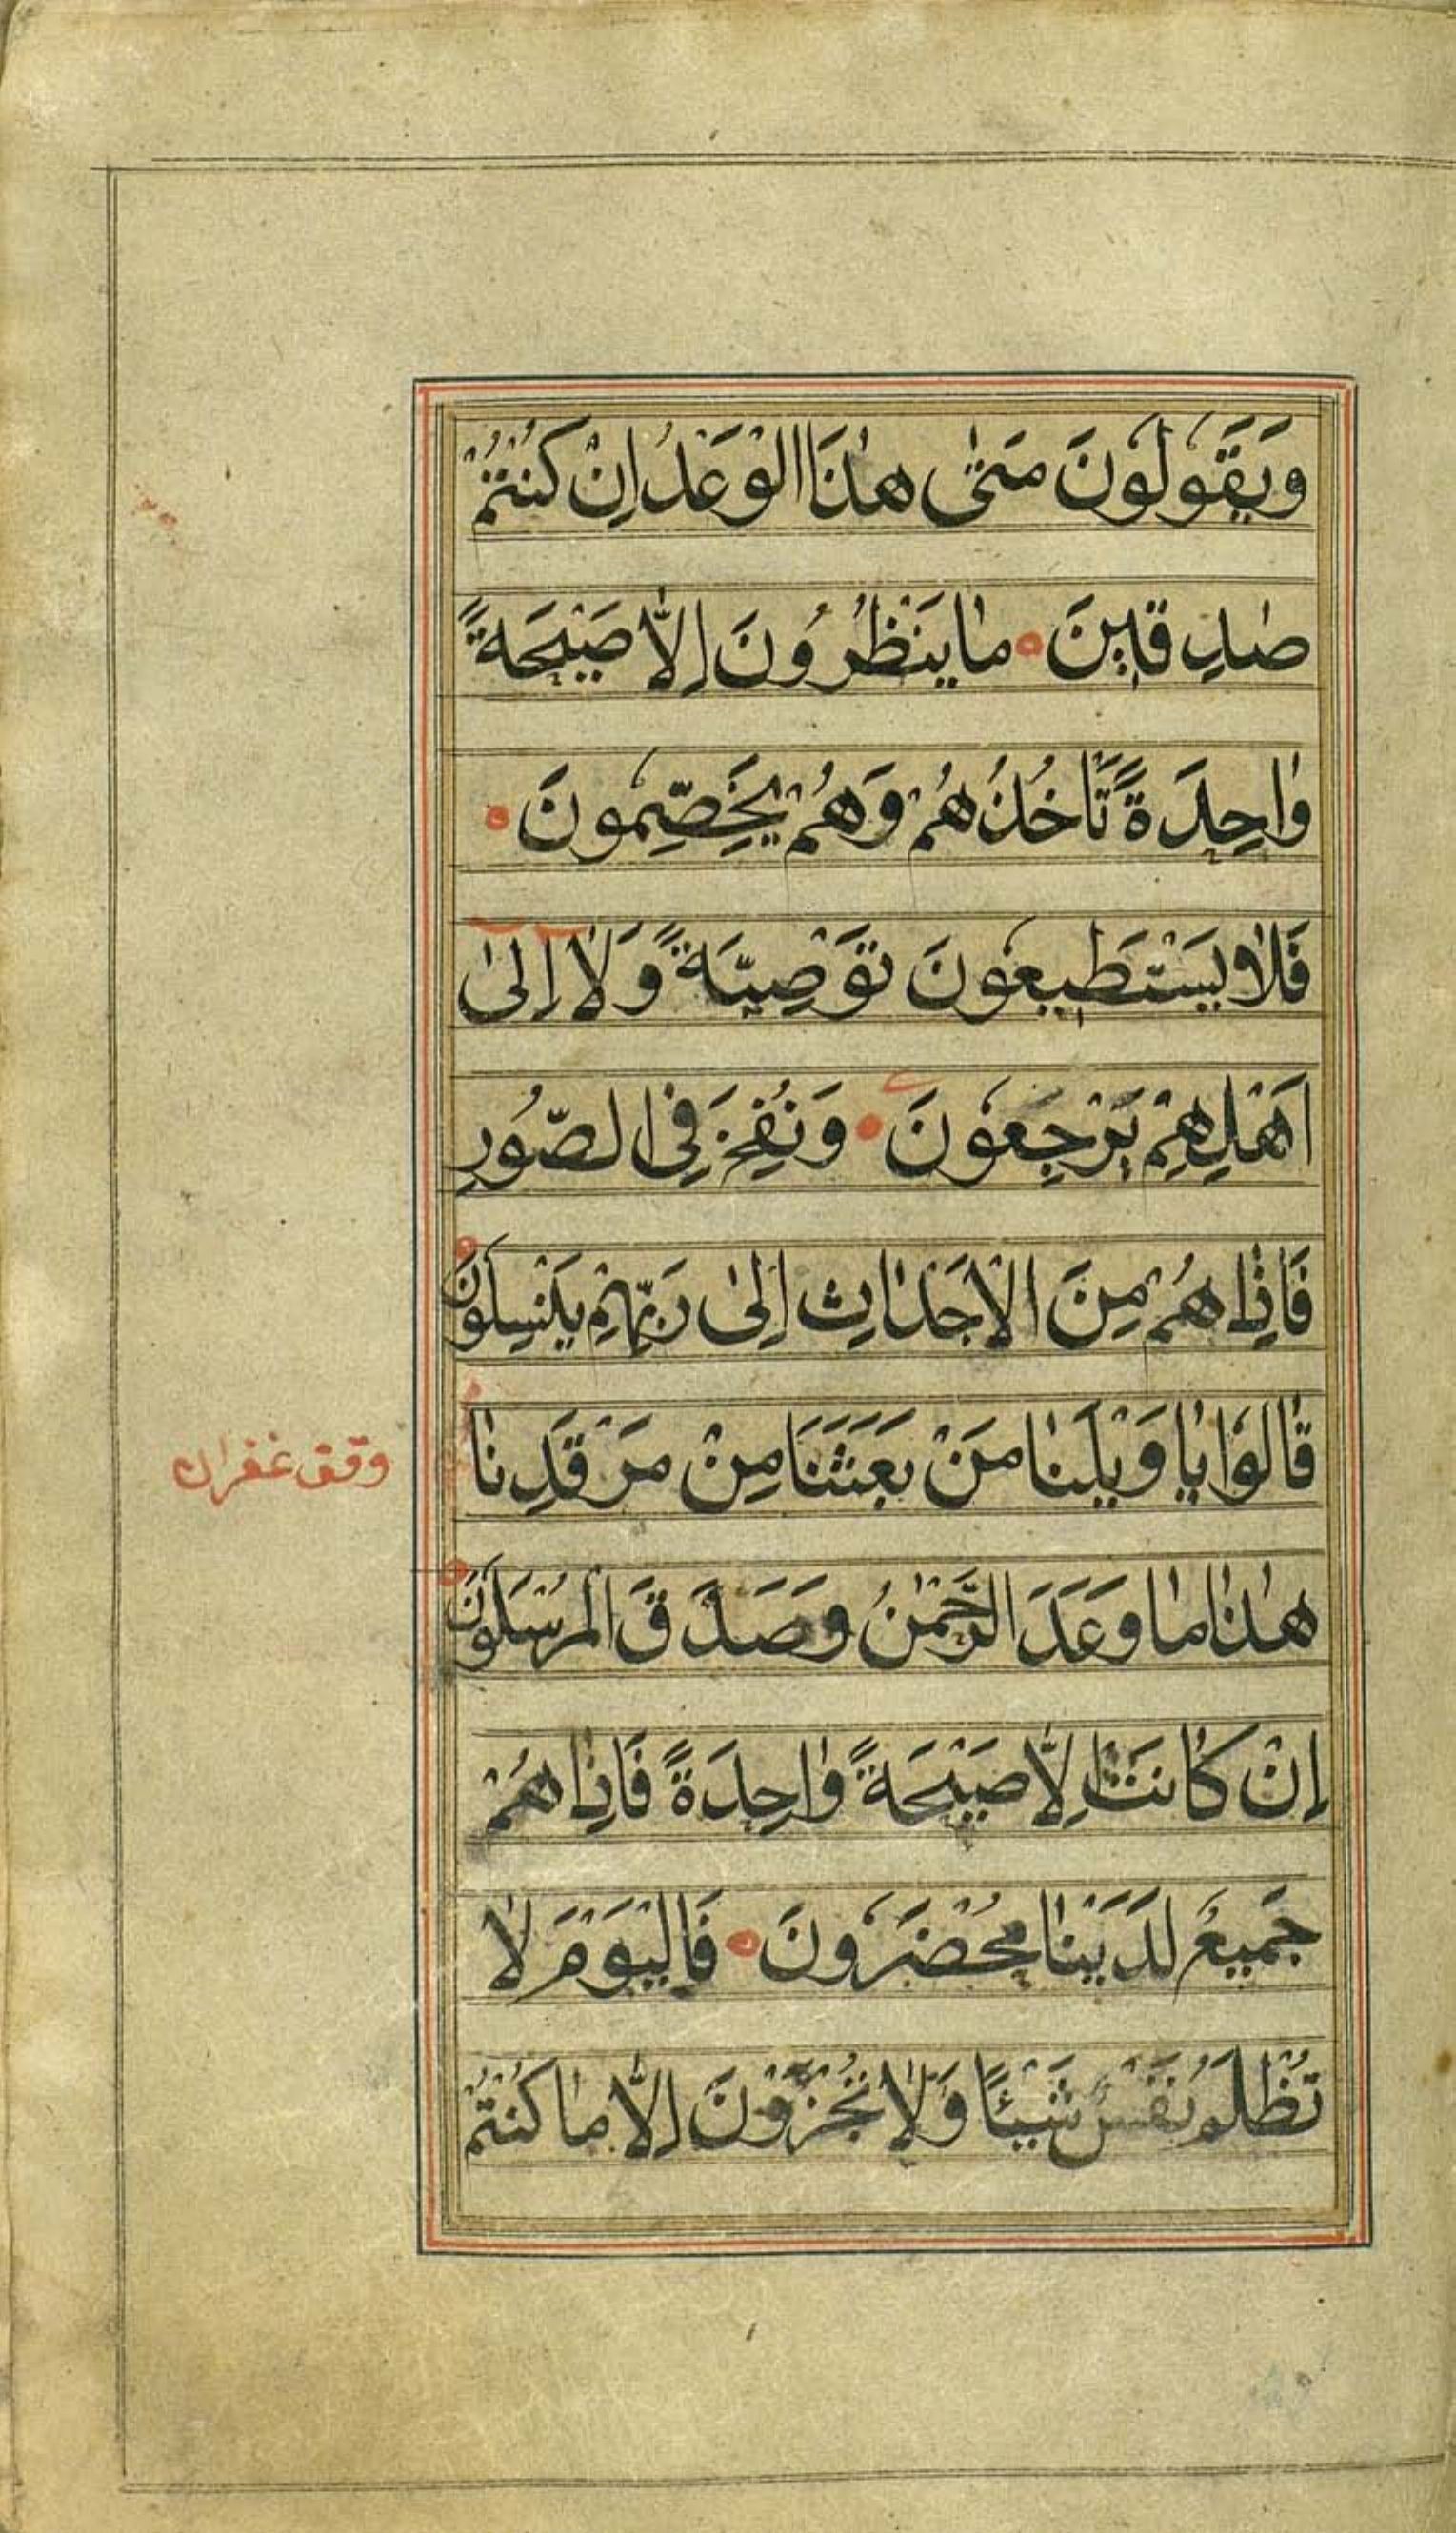 وَيَقُولُونَ مَتٰى هٰذَا الْوَعْدُ اِنْ كُنْتُمْ
صٰدِقٖينَ ۰ مٰا يَنْظُرُونَ اِلّٰا صَيْحَةً
وٰاحِدَةً تَأْخُذُهُمْ وَهُمْ يَخِصِّمُونَ ۰
فَلٰا يَسْتَطٖيعُونَ تَوْصِيَةً وَلٰا اِلىٰ
اَهْلِهِمْ يَرْجِعُونَ ۰ وَنُفِخَ فِى الصُّورِ
فَاِذٰا هُمْ مِنَ الْاَجْدٰاثِ اِلىٰ رَبِّهِمْ يَنْسِلُونَ
قٰالُوا يٰا وَيْلَنٰا مَنْ بَعَثَنَا مِنْ مَرْقَدِنٰا
وقف غفران
هٰذٰا مٰا وَعَدَ الرَّحْمٰنُ وَصَدَقَ الْمُرْسَلُونَ
اِنْ كٰانَتْ اِلّٰا صَيْحَةً وٰاحِدَةً فَاِذٰا هُمْ
جَمٖيعٌ لَدَيْنٰا مُحْضَرُونَ ۰ فَالْيَوْمَ لٰا
تُظْلَمُ نَفْسٌ شَيْئًا وَلٰا تُجْزَوْنَ اِلّٰا مٰا كُنْتُمْ